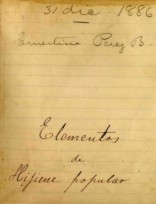 31 dic 1886
Ernestina Perez B.
Elementos
de
Higiene popular